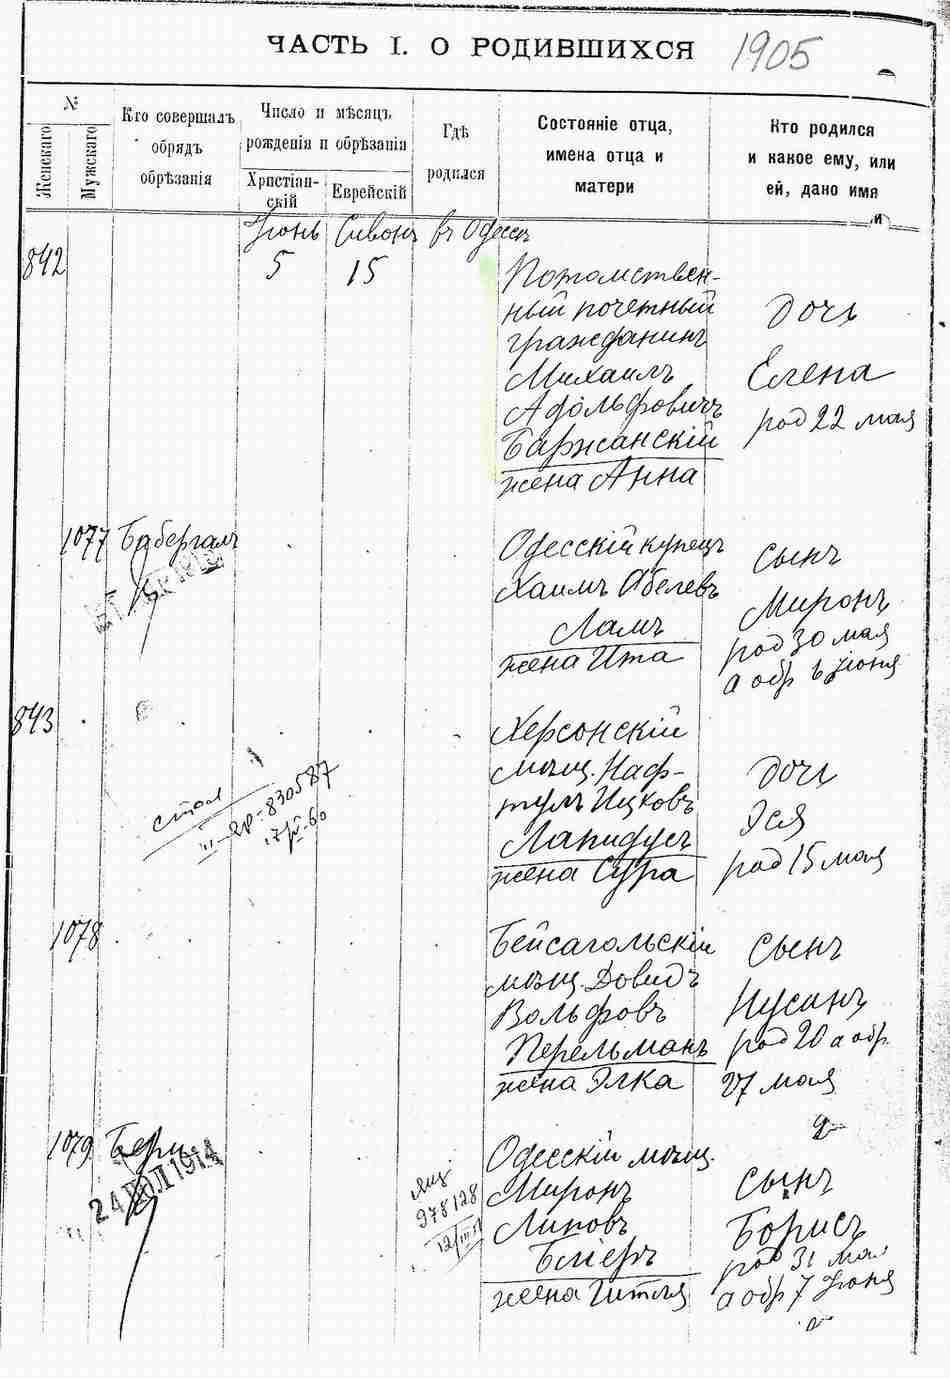 ЧАСТЬ I. О РОДИВШИХСЯ 1905
№
Женскаго
Мужскаго
Кто совершалъ
обрядъ
обрѣзанія
Число и мѣсяцъ
рожденія и обрѣзанія
Христіан-
скій
Еврейскій
Гдѣ
родился
Состояніе отца,
имена отца и
матери
Кто родился
и какое ему, или
ей, дано имя
Іюнь Сивонъ въ Одессѣ
842
5
15
Потомствен-
ный почетный
гражданинъ
Михаилъ
Адольфовичъ
Баржанскій
жена Анна
дочь
Елена
род 22 мая
1077 Бабергалъ
Одесскій купецъ
Хаимъ Абелевъ
Ламъ
жена Ита
сынъ
Миронъ
род 30 мая
а обр 6 Іюня
843
Херсонскій
мѣщ. Наф-
тулъ Ицковъ
Лапидусъ
жена Сура
дочь
Эся
род 15 мая
III-ЯР-830587
1078
Бейсагольскій
мѣщ. Довидъ
Вольфовъ
Перельманъ
жена Элка
сынъ
Нусинъ
род 20 а обр
27 мая
1079
24 ИЮЛ 1914
978128
Одесскій мѣщ.
Миронъ
Липовъ
Бліеръ
жена Гитля
сынъ
Борисъ
род 31 мая
а обр 7 Іюня